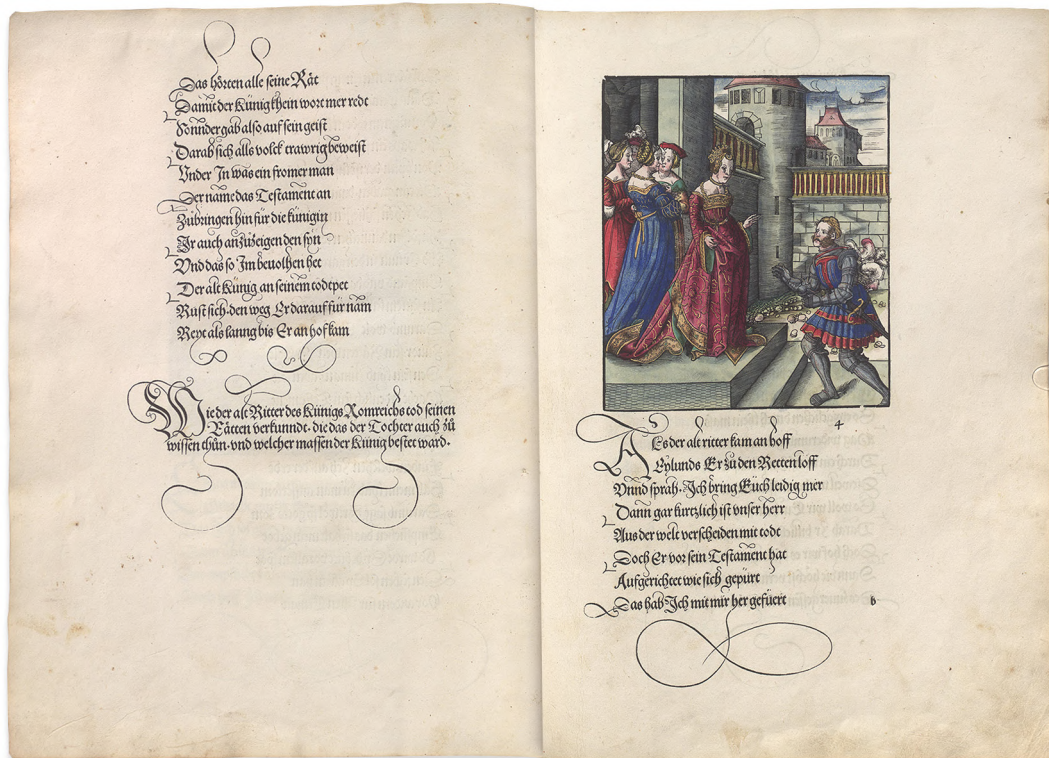 Das hörten alle seine Rät
Damit der Künig khein wort mer redt
Sonnder gab also auf sein geist
Darab sich alls volck trawrig beweist
Vnder In was ein fromer man
Der name das Testament an
Zůbringen hin für die künigin
Ir auch anzůzeigen den syn
Vnd das so Im bevolhen het
Der alt Künig an seinem todtpet
Rust sich den weg Er darauf für nam
Reyt als lanng bis Er an hof kam
Wie der alt Ritter des Künigs Romreichs tod seinen
Rätten verkunndt· die das der Tochter auch zů
wissen thůn· vnd welcher massen der Künig bestet ward·
4
Als der alt ritter kam an hoff
Eylunds Er zů den Retten loff
Vnnd sprah· Ich bring Euch leidig mer
Dann gar kurtzlich ist vnser herr
Aus der welt verscheiden mit todt
Doch Er vor sein Testament hat
Aufgerichtet wie sich gepürt
Das hab Ich mit mir her gefuert
b